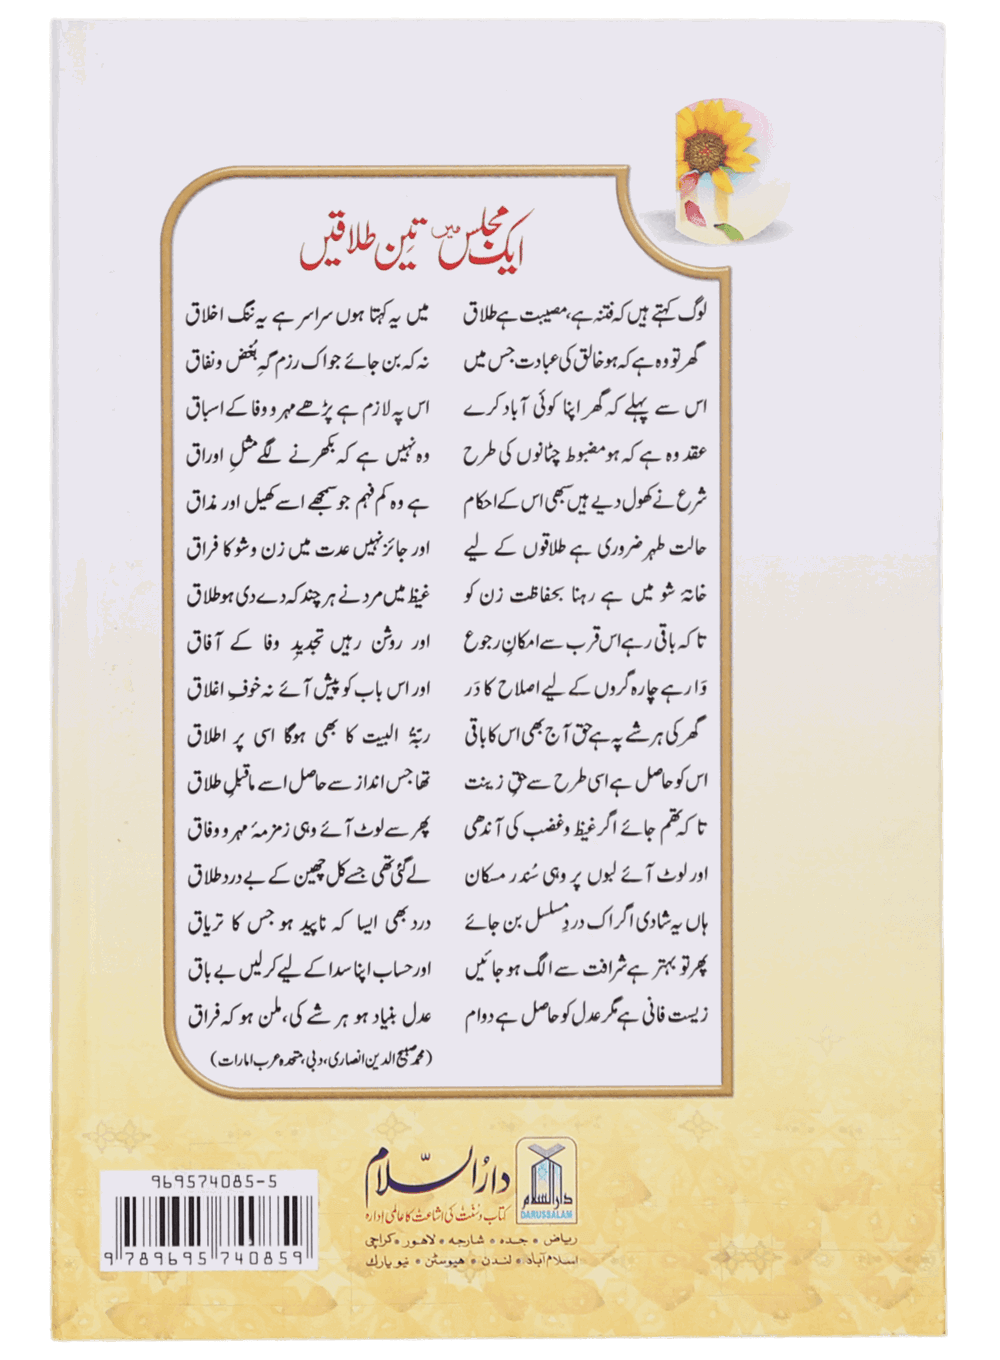 ایک مجلس میں تین طلاقیں
لوگ کہتے ہیں کہ فتنہ ہے، مصیبت ہے طلاق میں یہ کہتا ہوں سراسر ہے یہ ننگ اخلاق
گھر تو وہ ہے کہ ہو خالق کی عبادت جس میں نہ کہ بن جائے جو اک رزم گہِ بُغض و نفاق
اس سے پہلے کہ گھر اپنا کوئی آباد کرے اس پہ لازم ہے پڑھے مہر و وفا کے اسباق
عقد وہ ہے کہ ہو مضبوط چٹانوں کی طرح وہ نہیں ہے کہ بکھرنے لگے مثلِ اوراق
شرع نے کھول دیے ہیں سبھی اس کے احکام ہے وہ کم فہم جو سمجھے اسے کھیل اور مذاق
حالت طہر ضروری ہے طلاقوں کے لیے اور جائز نہیں عدت میں زن و شو کا فراق
خانۂ شو میں ہے رہنا بحفاظت زن کو غیظ میں مرد نے ہر چند کہ دے دی ہو طلاق
تا کہ باقی رہے اس قرب سے امکانِ رجوع اور روشن رہیں تجدیدِ وفا کے آفاق
وَا رہے چارہ گروں کے لیے اصلاح کا دَر اور اس باب کو پیش آئے نہ خوفِ اغلاق
گھر کی ہر شے پہ ہے حق آج بھی اس کا باقی ربّۃُ البیت کا بھی ہوگا اسی پر اطلاق
اس کو حاصل ہے اسی طرح سے حقِ زینت تھا جس انداز سے حاصل اسے ماقبلِ طلاق
تا کہ تھم جائے اگر غیظ و غضب کی آندھی پھر سے لوٹ آئے وہی زمزمۂ مہر و وفاق
اور لوٹ آئے لبوں پر وہی سُندر مسکان لے گئی تھی جسے کل چھین کے بے درد طلاق
ہاں یہ شادی اگر اک دردِ مسلسل بن جائے درد بھی ایسا کہ ناپید ہو جس کا تریاق
پھر تو بہتر ہے شرافت سے الگ ہو جائیں اور حساب اپنا سدا کے لیے کرلیں بے باق
زیست فانی ہے مگر عدل کو حاصل ہے دوام عدل بنیاد ہو ہر شے کی، ملن ہو کہ فراق
(محمد صبیح الدین انصاری، دبی، متحدہ عرب امارات)
دارالسلام
دارُالسّلام
DARUSSALAM
کتاب و سنّت کی اشاعت کا عالمی ادارہ
ریاض • جدہ • شارجہ • لاهور • کراچی
اسلام آباد • لندن • هیوسٹن • نیو یارک
969574085-5
9 789695 740859